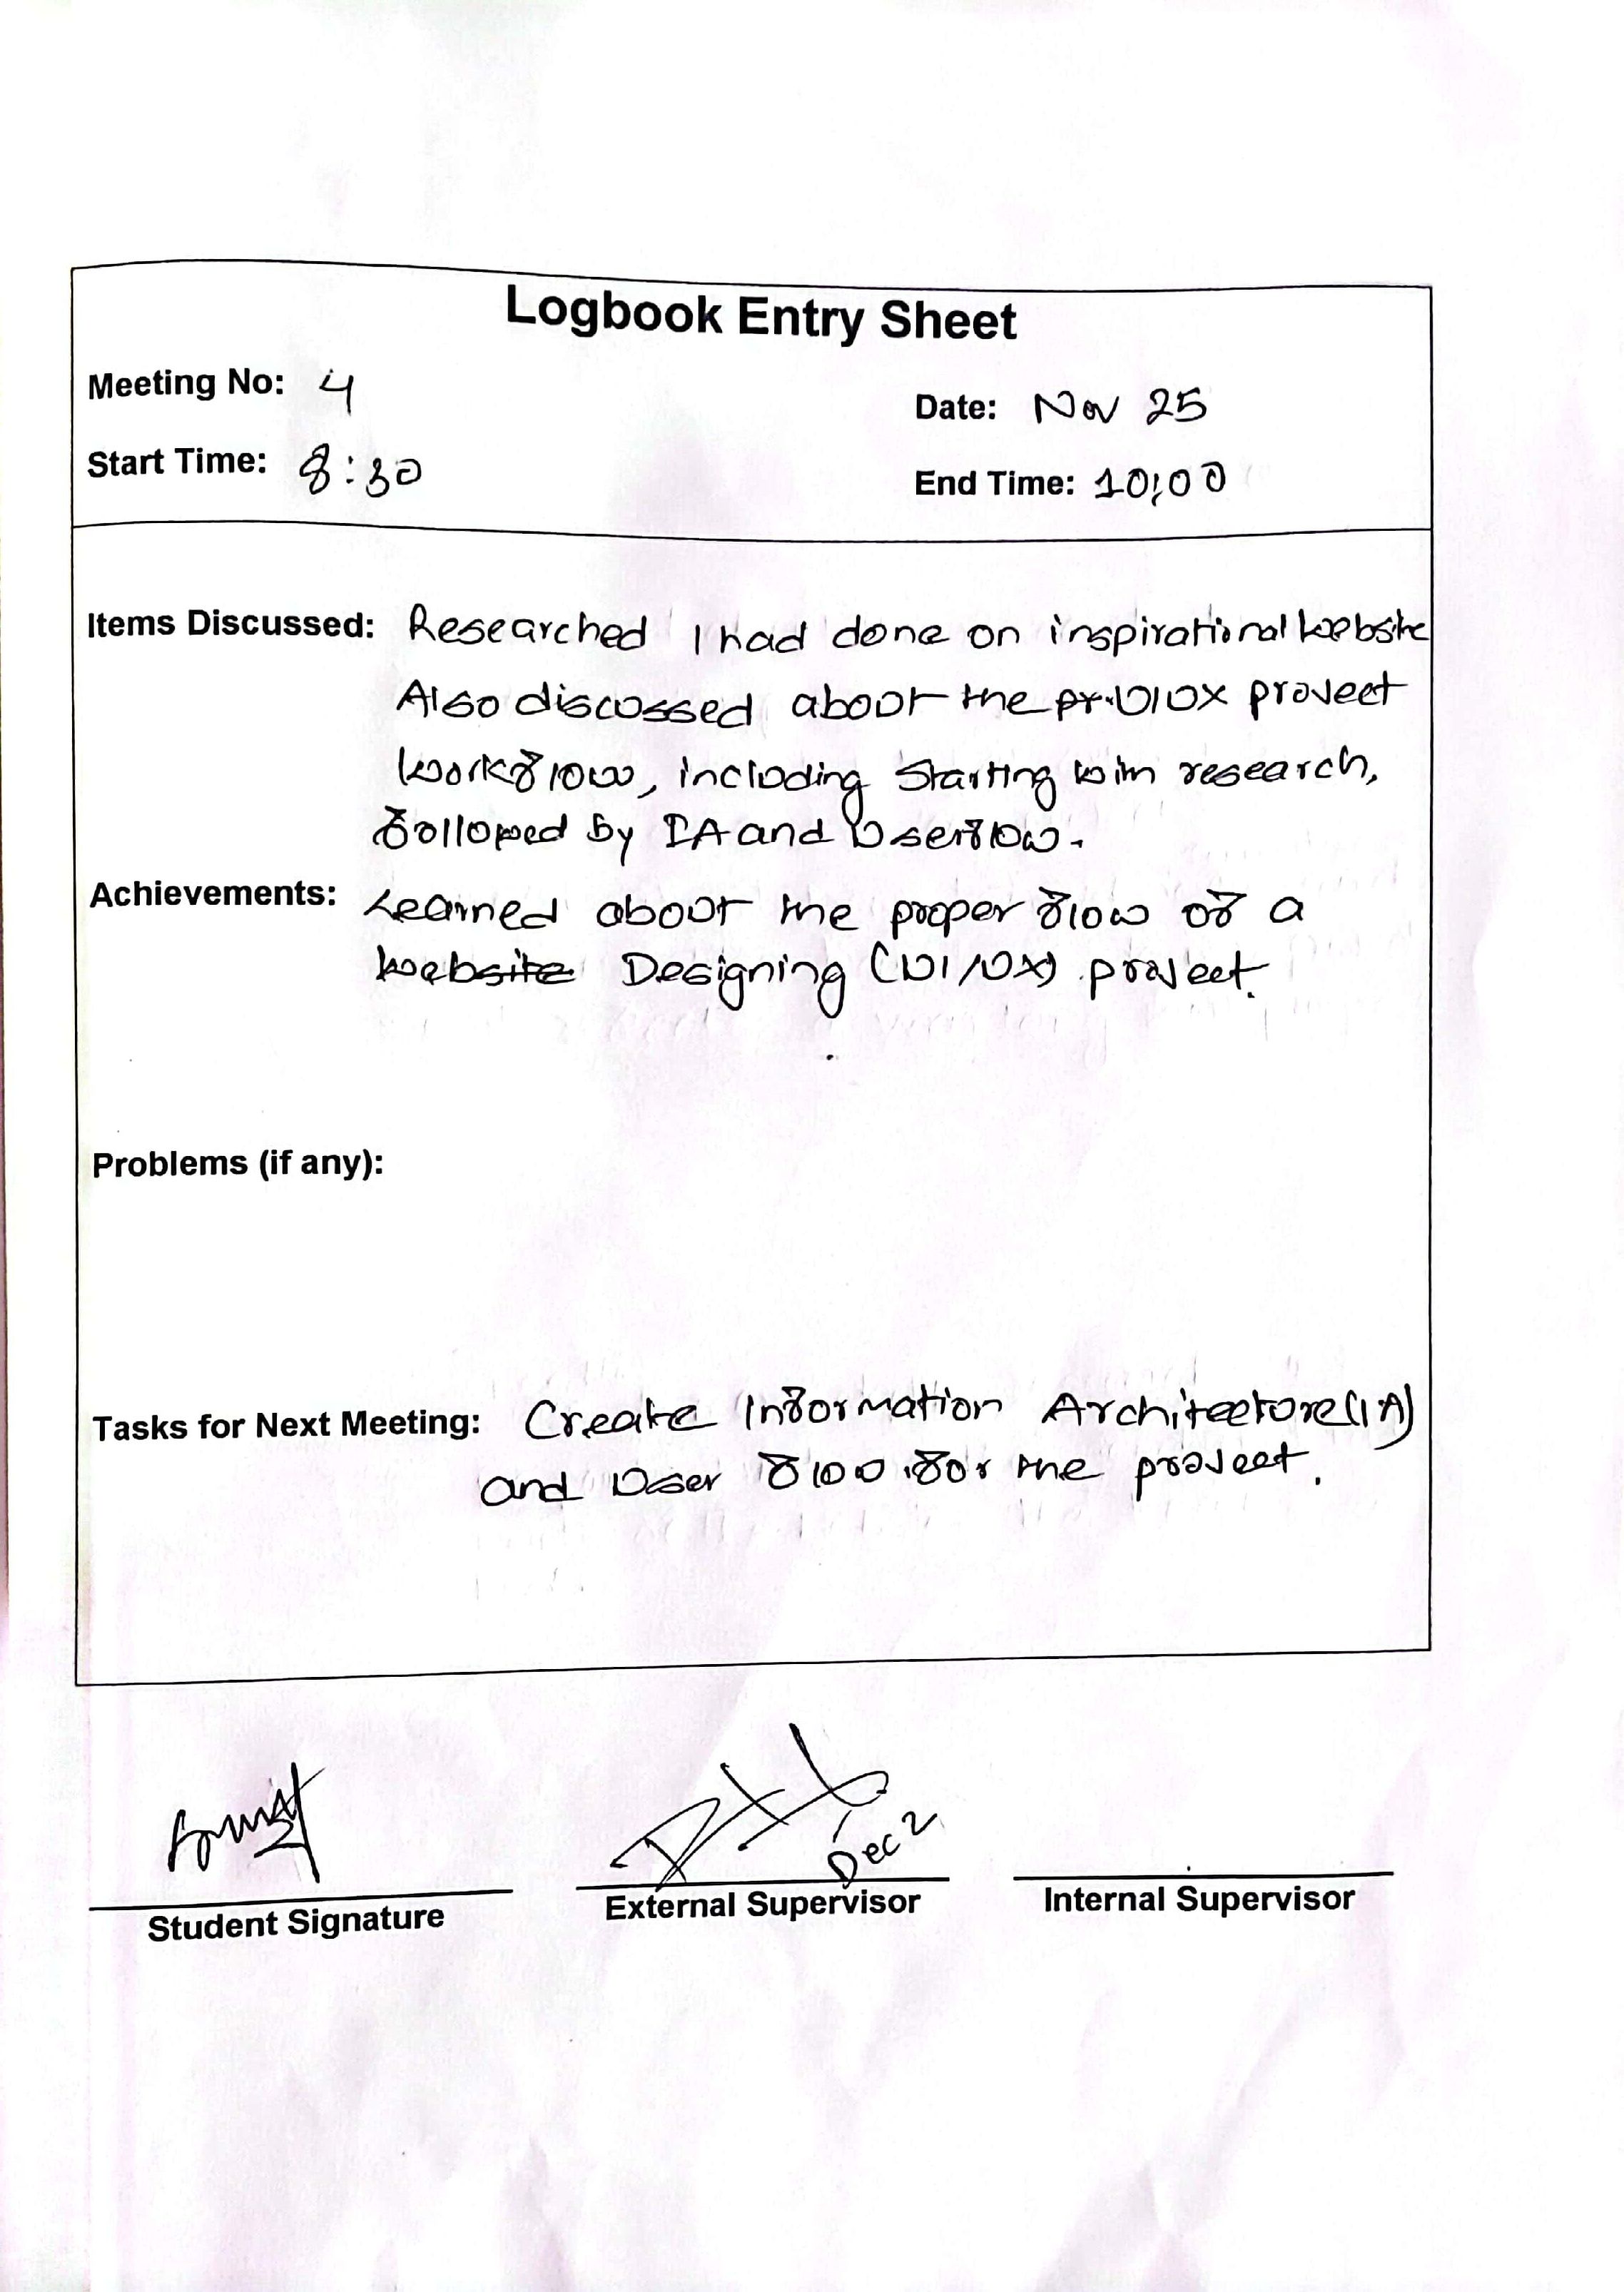 Logbook Entry Sheet
Meeting No: 4
Date: Nov 25
Start Time: 8:30
End Time: 10:00
Items Discussed: Researched I had done on inspirational website
Also discussed about the UIUX project
workflow, including starting with research,
followed by IA and Userflow.
Achievements: Learned about the proper flow of a
website Designing (UI/UX) project.
Problems (if any):
Tasks for Next Meeting: Create Information Architecture(IA)
and User flow for the project.
Dec 2
Student Signature
External Supervisor
Internal Supervisor